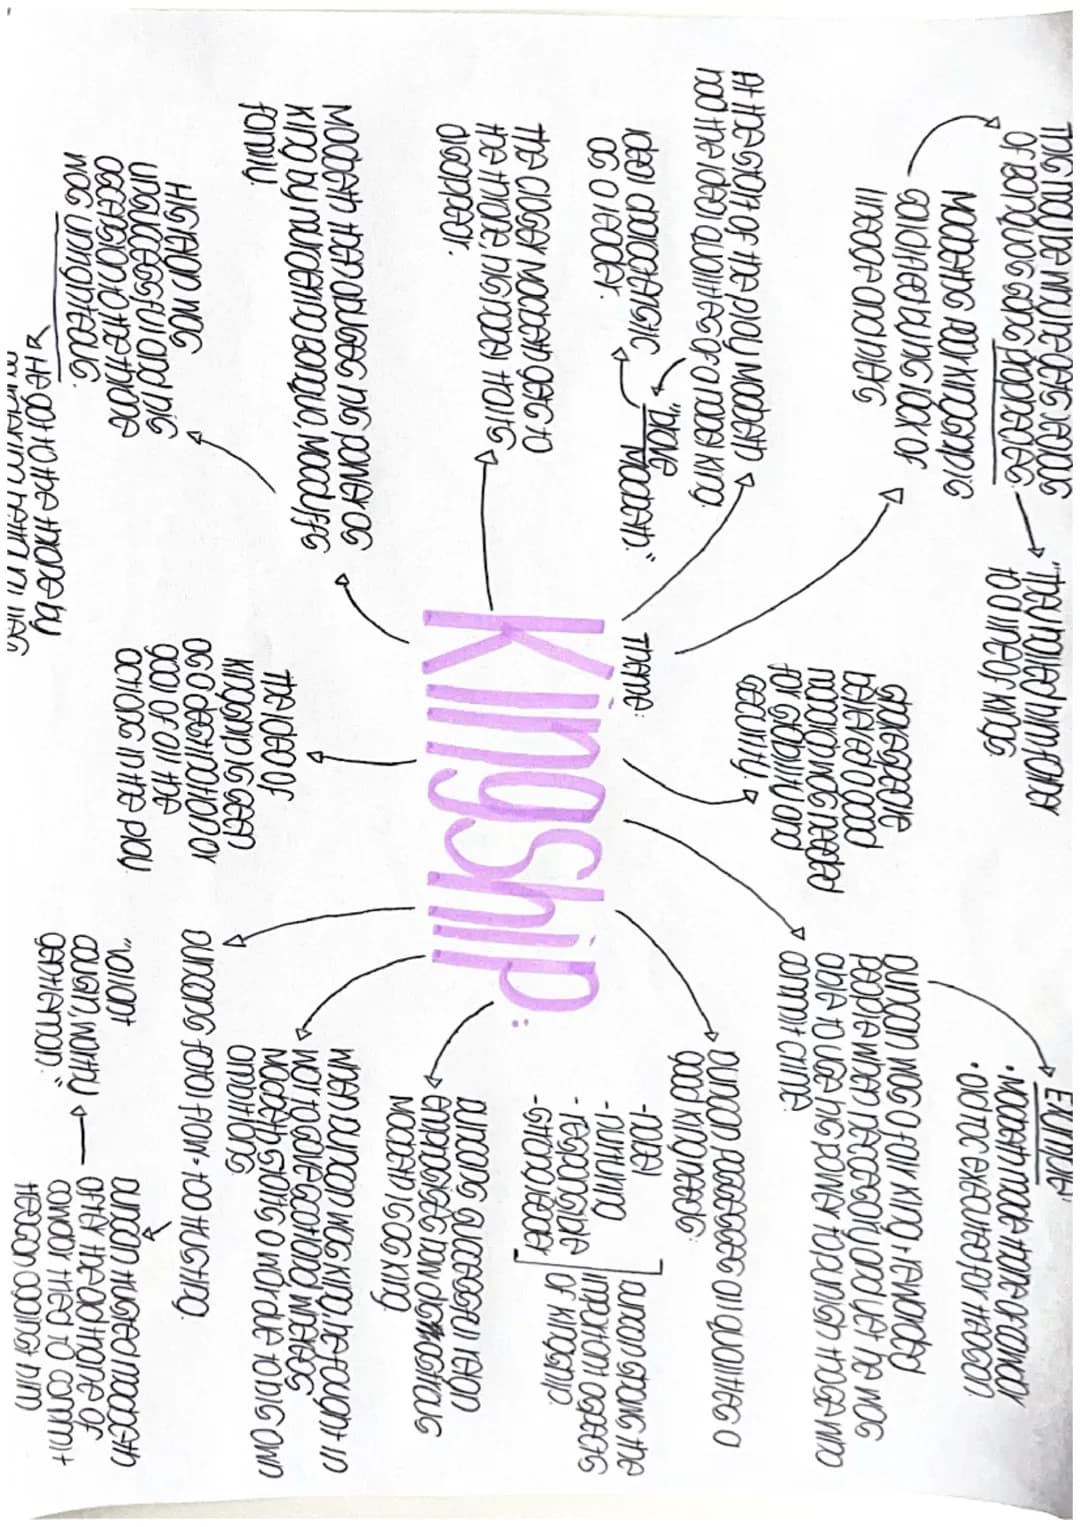 Theme:
Kingship:
This could be why he gets jealous
of Banquo's sons prophecies.
"They hailed him father
to a line of kings.
Macbeth's poor kingship is
solidified by his lack of
lineage and heirs
At the start of the play Macbeth
had the ideal qualities of a noble king.
"brave
Macbeth."
ideal characteristic
as a leader.
The closer Macbeth gets to
the throne, his noble traits
disappear.
Macbeth then abuses his power as
King by murdering Banquo, Macduff's
family.
His reign was
unsuccessful and his
ascension to the throne
was unrighteous.
got to the throne by
The idea of
Kingship is seen
as a destination or
goal of all the
actions in the play.
Shakespeare
believed a good
monarch was needed
for stability and
security.
Duncan was a fair King, rewarded
people when necessary and yet he was
able to use his power to punish those who
commit crime.
Example:
• Macbeth made thane of Cawdor
• Old TOC executed for treason.
Duncan possesses all qualities a
good king needs:
- noble
- nurturing
- responsible
- strong leader
Duncan shows the
important aspects
of Kingship.
Duncan's successful reign
emphasises how disastrous
Macbeth is as King.
When Duncan was King, he fought in
war to save Scotland whereas
Macbeth starts a war due to his own
ambitions
Duncan's fatal flaw - too trusting.
Duncan trusted Macbeth
after the old thane of
cawdor tried to commit
treason against him
"valiant
cousin, worthy
gentleman."